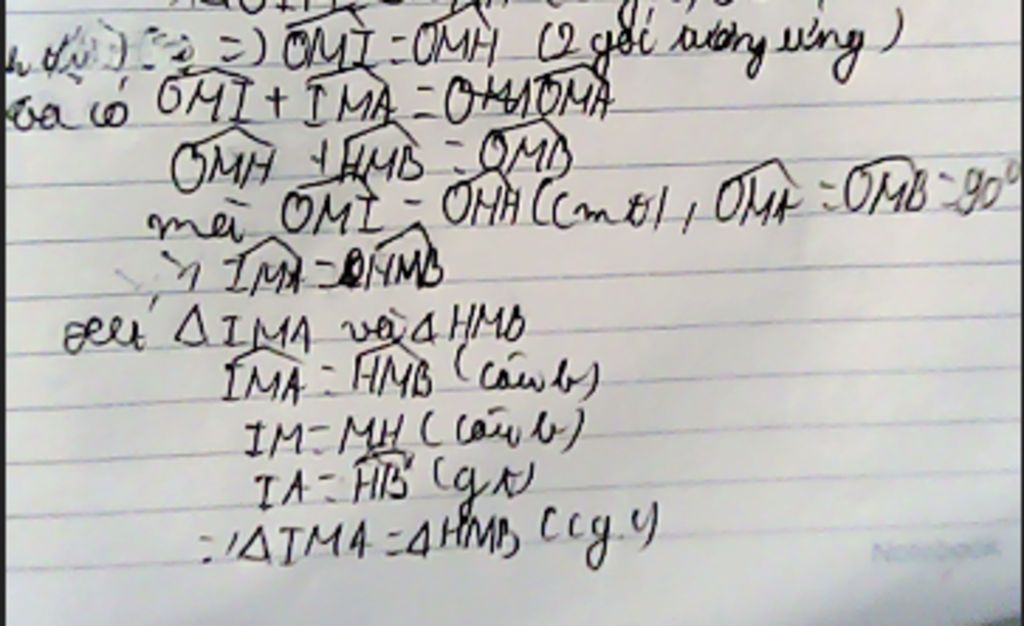 =) OMI = OMH (2 góc tương ứng)
Ta có OMI + IMA = OMA
OMH + HMB = OMB
mà OMI = OMH (cmt), OMA = OMB = 90°
IMA = HMB
xét Δ IMA và Δ HMB
IMA = HMB (câu b)
IM = MH (câu b)
IA = HB (gt)
=) Δ IMA = Δ HMB (c.g.c)
Notebook